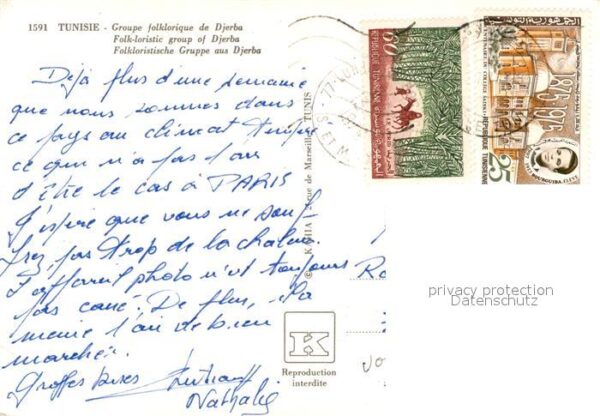 1591 TUNISIE - Groupe folklorique de Djerba
Folk-loristic group of Djerba
Folkloristische Gruppe aus Djerba
Déjà plus d'une semaine
que nous sommes dans
ce pays au climat tempéré
ce qui n'a pas l'air
d'être le cas à PARIS
J'espère que vous ne souf-
frez pas trop de la chaleur.
L'appareil photo n'est toujours
pas cassé. De plus, il a
même l'air de bien
marcher.
Grosses bises
Nathalie
© KAHIA de Marseille TUNIS
K
Reproduction
interdite
REPUBLIQUE TUNISIENNE
60
1874-1975
REPUBLIQUE TUNISIENNE
25
BOURGUIBA ELEVE
privacy protection
Datenschutz